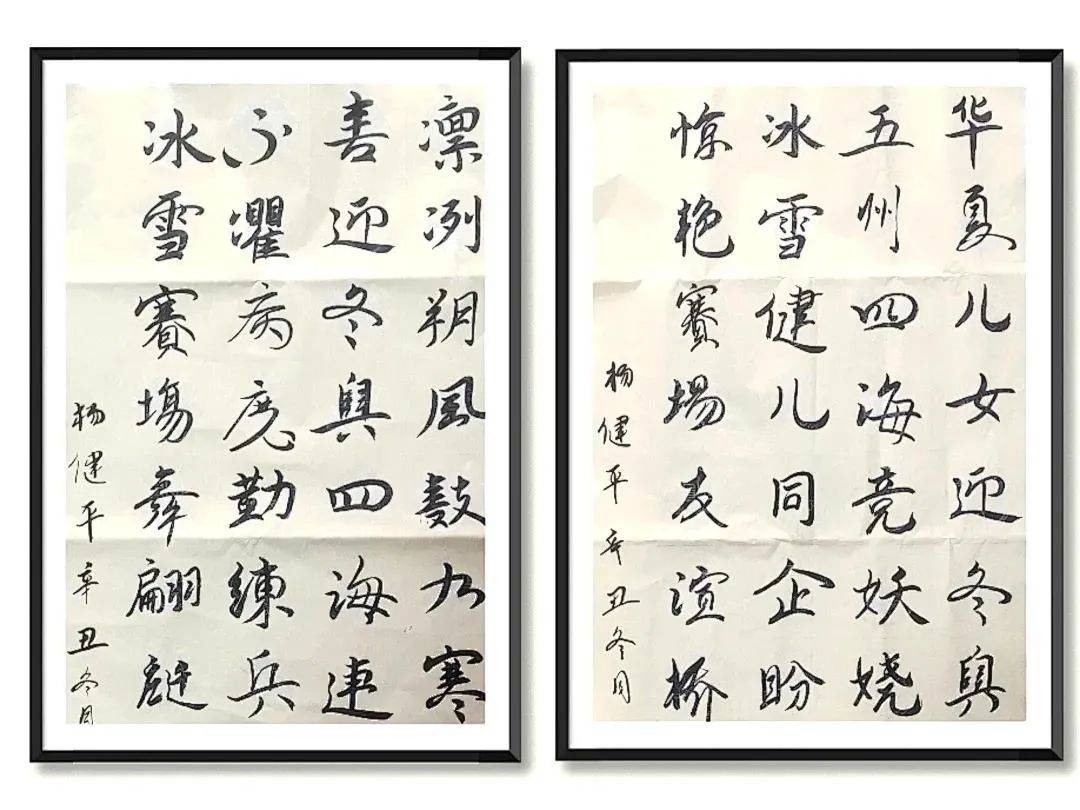 凛冽朔風鼓九寒
喜迎冬奥四海連
不懼病魔勤練兵
冰雪賽場舞翩躚
杨健平 辛丑冬月
华夏儿女迎冬奥
五州四海竞妖娆
冰雪健儿同企盼
惊艳賽場友谊桥
杨健平 辛丑冬月